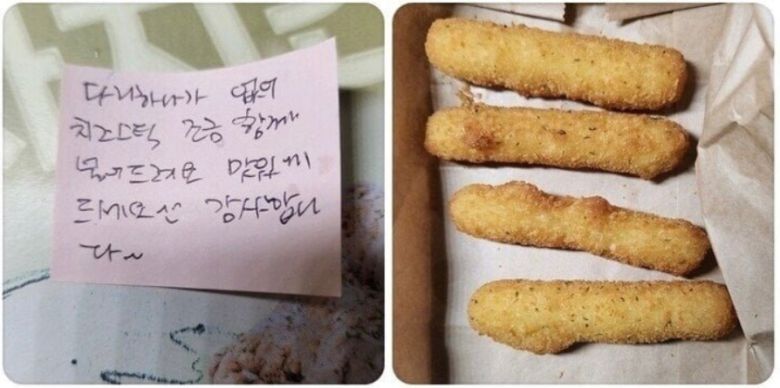 다리하나가 없어
치즈스틱 조금 함께
넣어드려요 맛있게
드세요 감사합니
다~